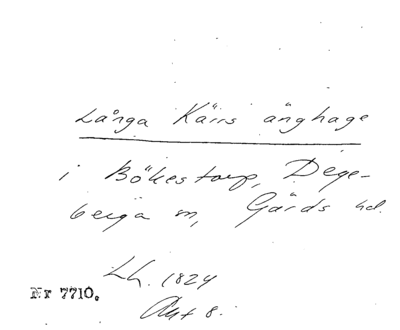 Långa Kärrs änghage
i Bökestorp, Dege-
berga sn, Gärds hd.
Lh. 1824
Akt 8.
Nr 7710.